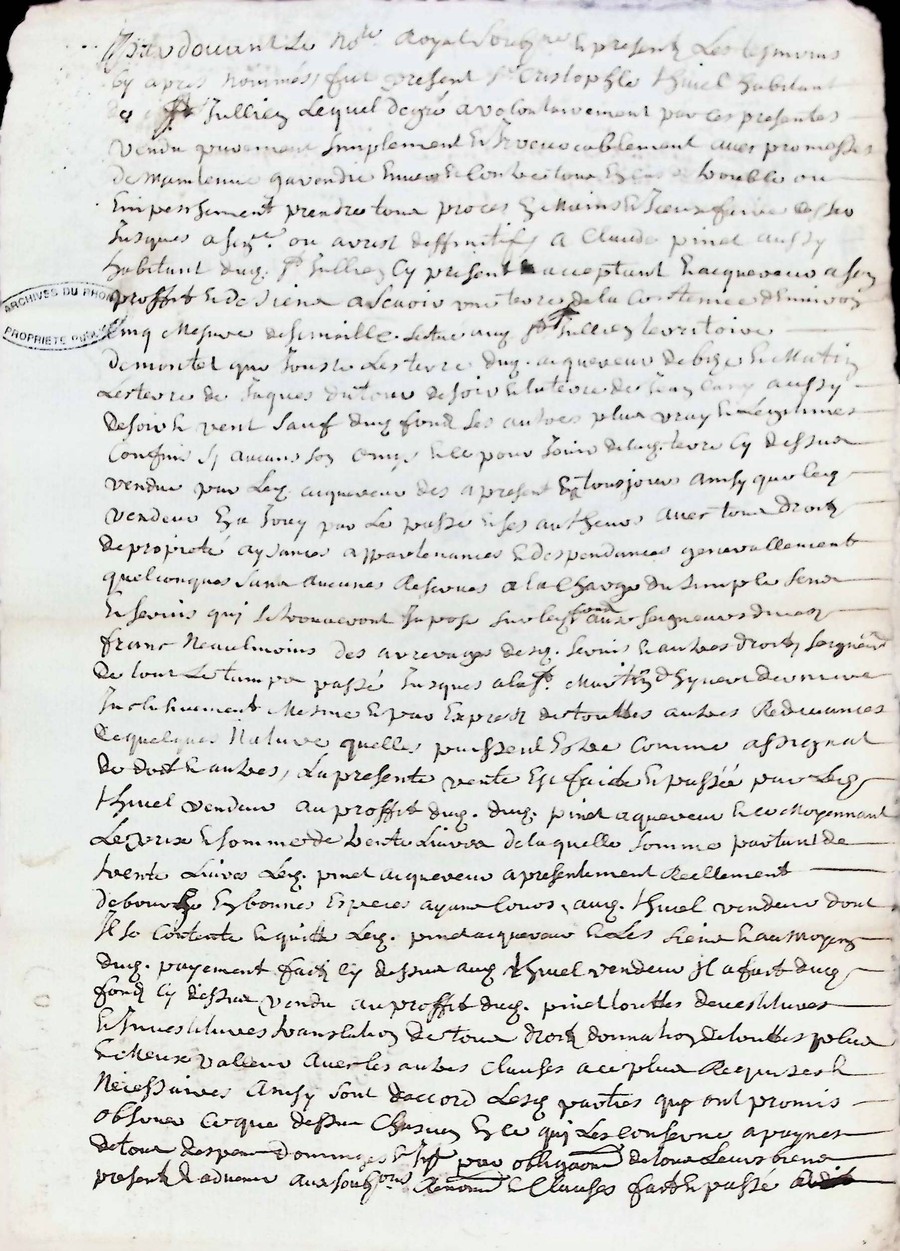 Pardevant le no.re Royal soubz.ne et present les tesmoins
cy apres nommés, fut present s.r Cristophle thivel habitant
de s.t Jullien lequel de gré a volontairement par ces presentes
vendu purement simplement et irrevocablement avec promesses
de maintenir garendir envers et contre tous en cas de trouble ou
Empeschement prendre tous proces en mains et iceux faire cesser
Jusques a sen.ce ou arrest deffinitif, a Claude pinet aussy
habitant dud. s.t Jullien cy present et acceptant et acquereur a son
proffit et des siens ascavoir une terre de la Contenue d'Environ
Cinq mesures de semaille. située aud s.t Jullien territoire
de montel qui Jouste les terre dud. acquereur de bize et matin
Les terre de Jaques du tour de soir et la terre de Jean aussy
de soir et vent sauf dud. fond ses autres plus vray et legitimes
Confins sy aucuns son omis et ce pour Jouir de lad. terre cy dessus
vendue par led. acquereur des a present et tousjours ainsy que led.
vendeur En a Jouy par le passé et ses autheurs avec tous droits
de proprieté aysances appartenances et despendances generallement
quelconques sans aucunes Reserves a la Charge du simple sens
et servis qui se trouveront Imposé sur led. fond aux seigneurs directz
franc neaulmoins des arrerages desd. servis et autres droitz seigneur.x
de tout le temps passé Jusques a la s.t Martin d'hyver derniere
Inclusivement mesme et par Expres de touttes autres Redevances
de quelques Nature quelles puissent Estre comme assignat
de dot et autres, La presente vente Est faite et passée par led.
thivel vendeur au proffit dud. dud. pinet acquereur et ce moyennant
Le prix et somme de trente Livres de laquelle somme partant de
trente Livres led. pinet acquereur a presentement Reellement
debourcé En bonnes Especes ayant cours, aud. thivel vendeur dont
Il se Contente et quitte led. pinet acquereur et les siens et au moyen
dud. payement fait cy dessus aud thivel vendeur il a fait dud
fond cy dessus vendu au proffit dud. pinet touttes devestitures
et Investitures translation de tous droitz donnation de touttes plus
et meux valleur avec les autres Clauses a ce plus Requises et
Nécessaires Ainsy sont d'accord Lesd parties qui ont promis
observer ce que dessus Chascun En ce qui les conserne a paynes
de tous despens dommages et par obligaons de tous leurs biens
present et advenir aux soubzons Renons et Clauses fait et passé
ARCHIVES DU RHONE
PROPRIETE PUBLIQUE